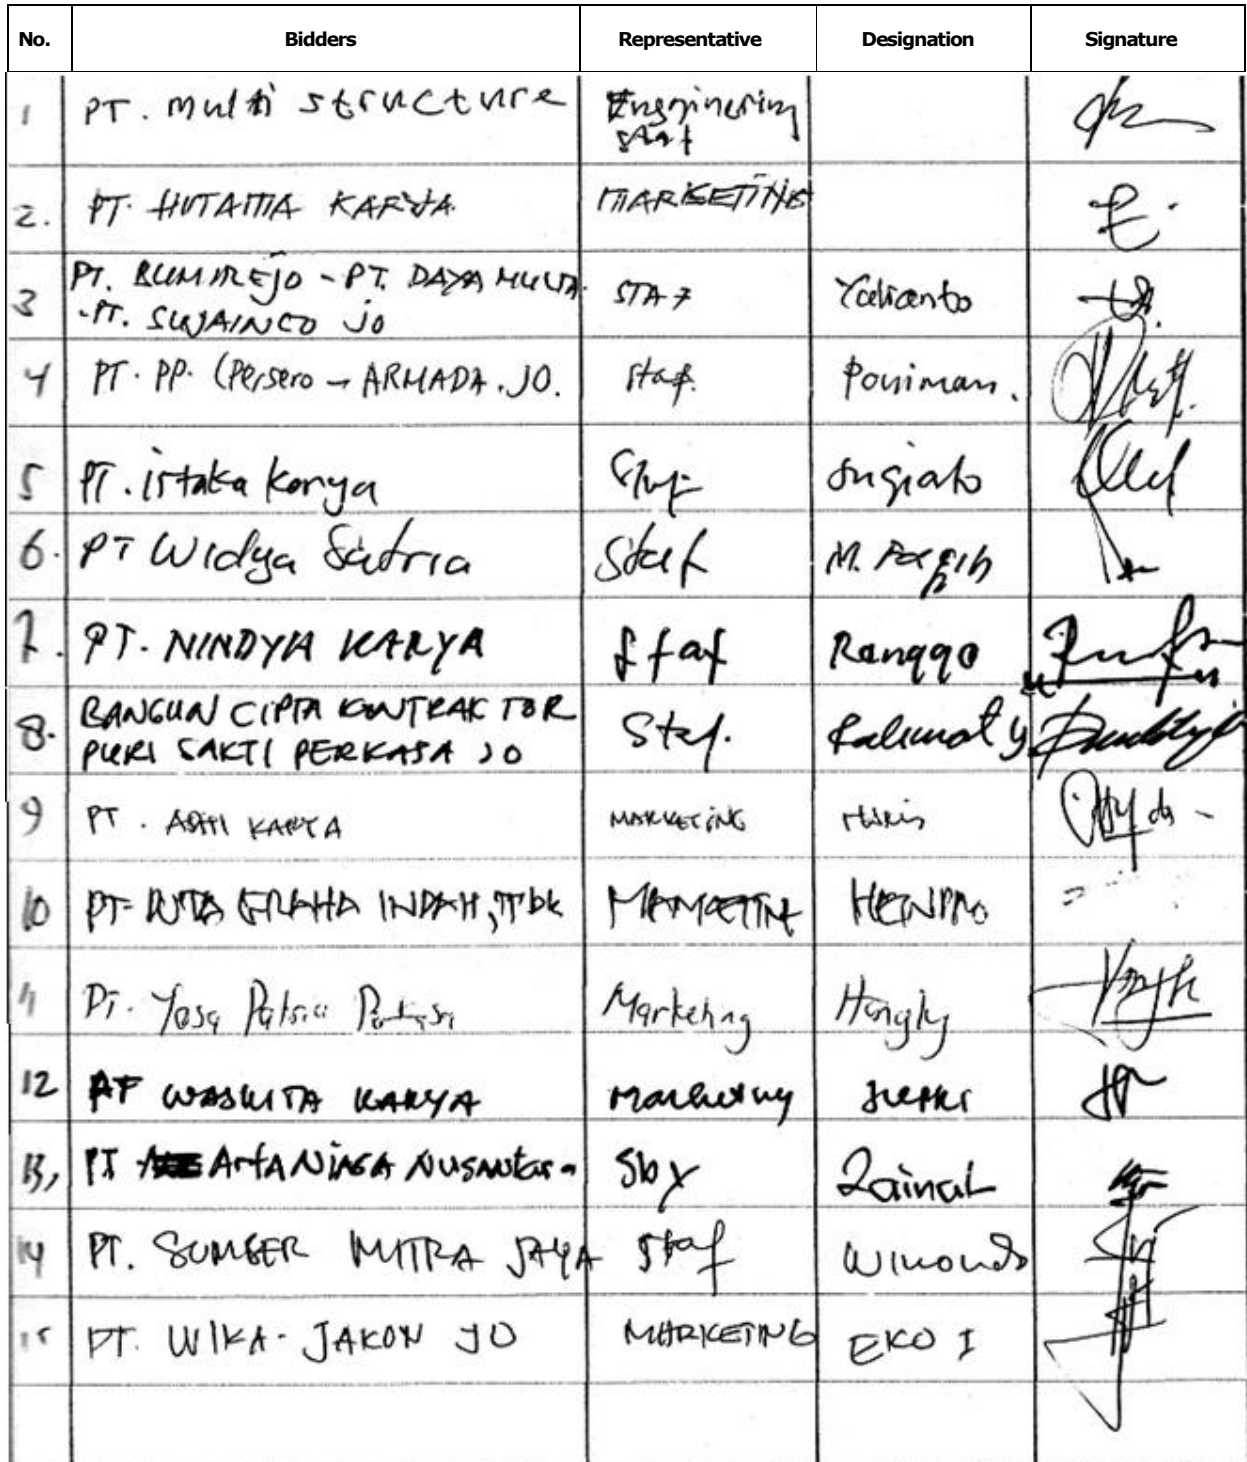 No. Bidders Representative Designation Signature
1 PT. Multi Structure Engginering
staf
2. PT. HUTAMA KARYA MARKETING
3 PT. BUMIREJO - PT. DAYA MULIA STAF Yulianto
- PT. SUWAINCO JO
4 PT. PP. (Persero - ARMADA. JO. staf. Poniman.
5 PT. istaka karya Staf Sugiato
6. PT Widya Satria Staf M. Faqih
7. PT. NINDYIA KARYA Staf Rangqo
8. BANGUN CIPTA KONTRAKTOR Staf. Rahmat y
PURI SAKTI PERKASA JO
9 PT. ADHI KARYA MARKETING HARIS
10 PT- DUTA GRAHA INDAH, Tbk MARKETING
11 PT. Yasa Patria Perkasa Marketing
12 PT WASKITA KARYA Marketing
13, PT ArtA NiAGA NUSANtara Sby Zainal
14 PT. SUMBER MITRA JAYA Staf
15 PT. WIKA - JAKON JO MARKETING EKO I